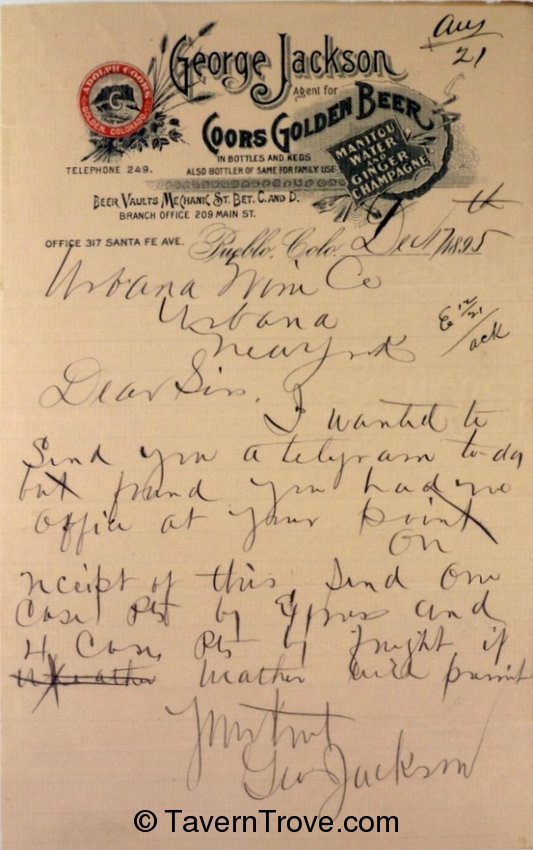 Ans
21
George Jackson
Agent for
Coors Golden Beer
IN BOTTLES AND KEGS
ALSO BOTTLER OF SAME FOR FAMILY USE
MANITOU
WATER
AND
GINGER
CHAMPAGNE
ADOLPH COORS
GOLDEN, COLORADO.
TELEPHONE 249.
BEER VAULTS MECHANIC ST. BET. C. AND D.
BRANCH OFFICE 209 MAIN ST.
OFFICE 317 SANTA FE AVE.
Pueblo, Colo. Dec 17th 1895
Urbana Wine Co
Urbana
New York
E 12/21
ack
Dear Sirs,
I wanted to
Send you a telegram to-day
but found you had no
Office at your point
On
receipt of this Send One
Case Pts by Express and
4 Case Pts by freight if
weather weather will permit
Yours truly
Geo Jackson
© TavernTrove.com